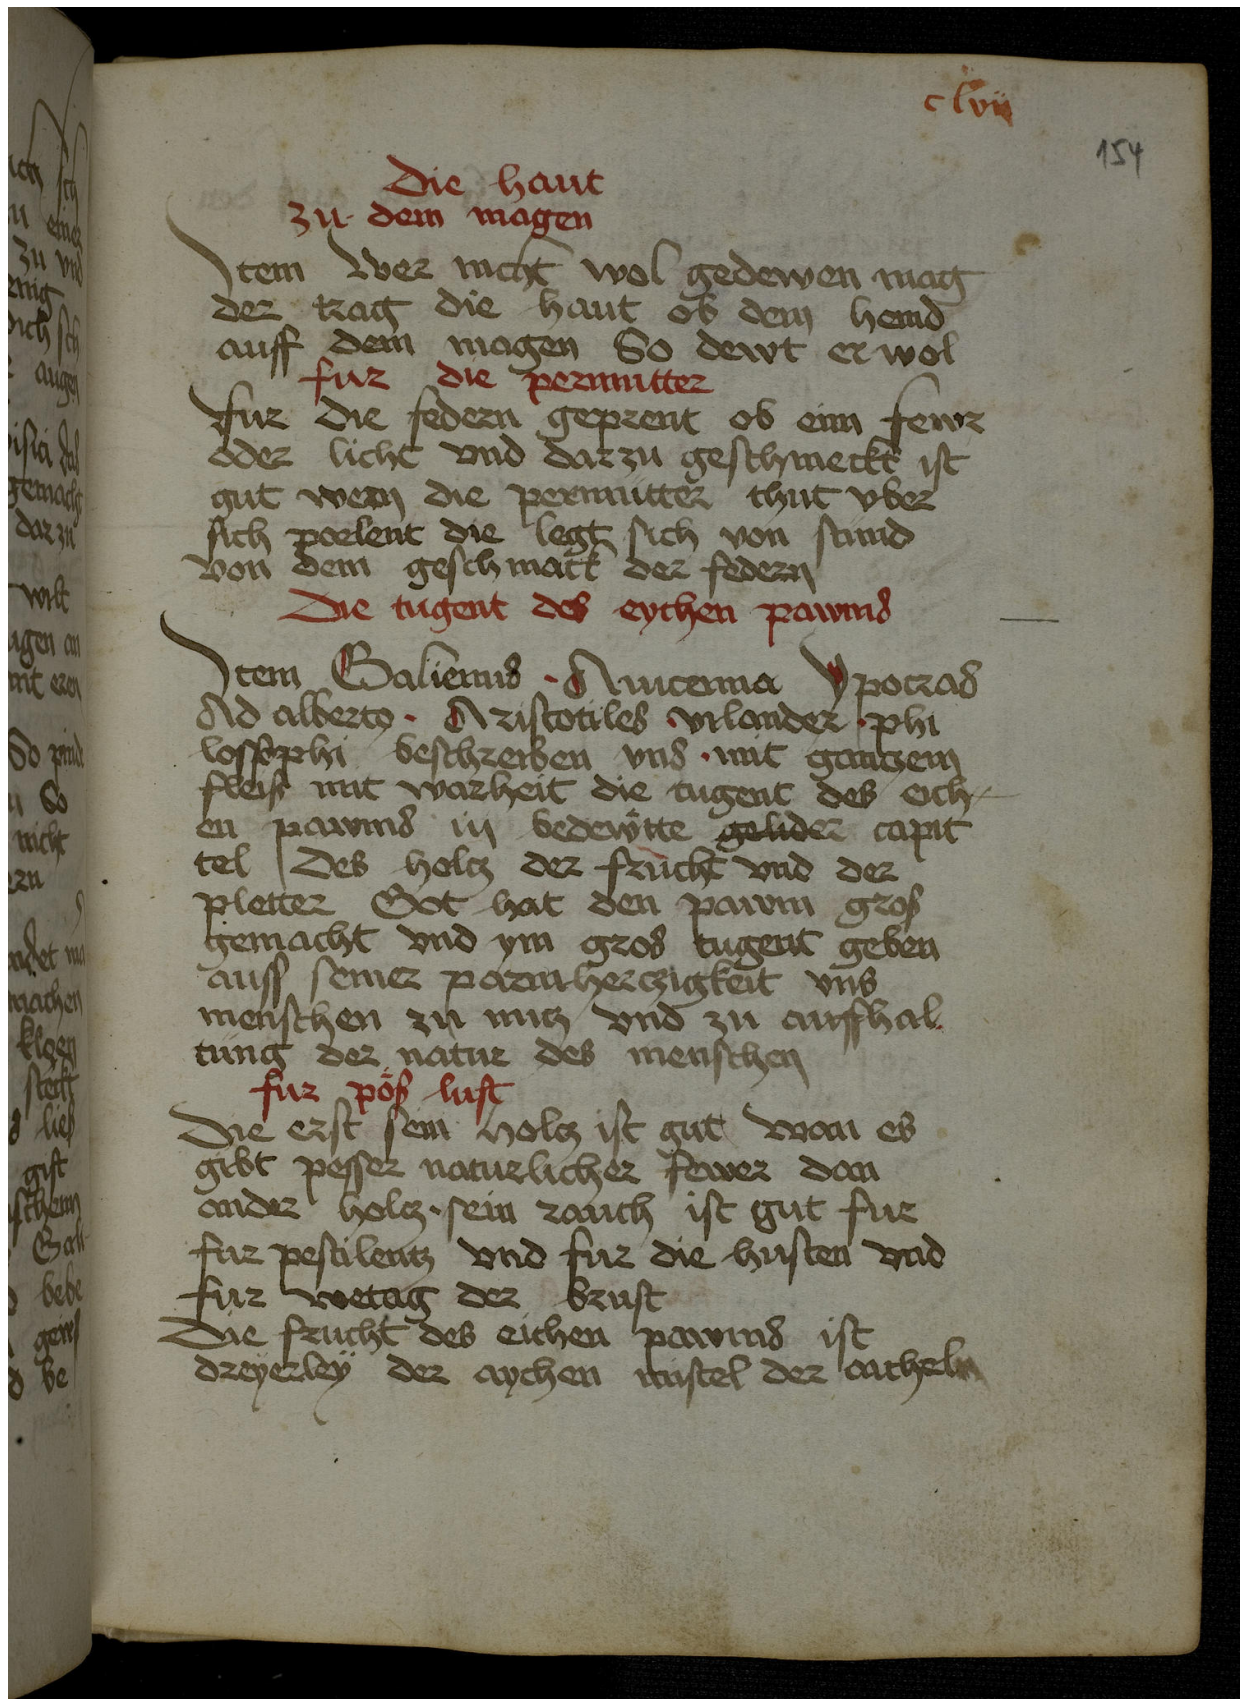 clvii
154
Die haut
zu dem magen
Item Wer nicht wol gedewen mag
der trag die haut ob dem hemd
auff dem magen So dewt er wol
fur die permutter
Fur die federn geprent ob eim fewr
oder licht vnd dar zu geschmeckt ist
gut wem die permutter thut vber
sich die legt sich von stund
von dem geschmack der federn
Die tugent des eychen pawms
Item Galienus · Auicenna Ypocras
Ad alberto · Aristotiles · phi
losophi beschreiben vns · mit gantzem
fleis mit warheit die tugent des eich
en pawms in bedewtte gelider capit
tel Des holtz der frucht vnd der
pletter Got hat den pawm gros
gemacht vnd ym gros tugent geben
auss seiner parmhertzigkeit vns
menschen zu nutz vnd zu auffhal
tung der natur des menschen
fur pöß luft
Die erst sein holtz ist gut wan es
gibt pesser naturlicher fewer dan
ander holtz · sein rauch ist gut fur
fur pestilentz vnd fur die husten vnd
fur wetag der brust
Die frucht des eichen pawms ist
dreyerley der aychen mistel der aicheln